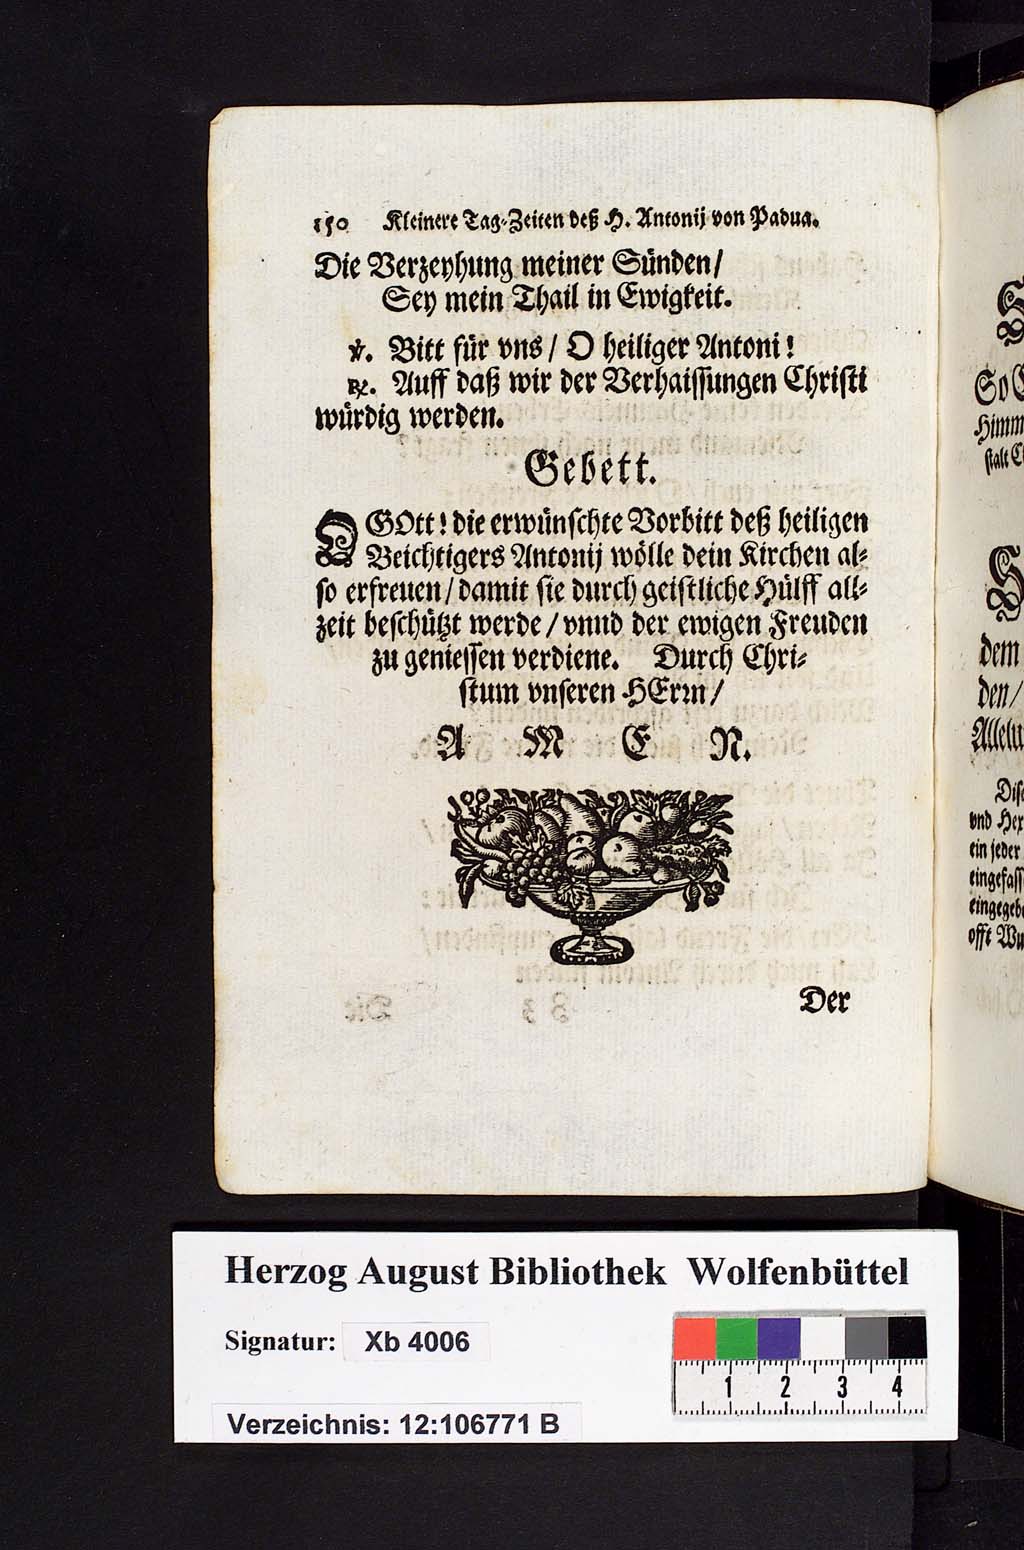 150 Kleinere Tag-Zeiten deß H. Antonij von Padua.
Die Verzeyhung meiner Sünden/
Sey mein Thail in Ewigkeit.
℣. Bitt für vns/ O heiliger Antoni!
℟. Auff daß wir der Verhaissungen Christi
würdig werden.
Gebett.
O GOtt! die erwünschte Vorbitt deß heiligen
Beichtigers Antonij wölle dein Kirchen al-
so erfreuen/ damit sie durch geistliche Hülff all-
zeit beschützt werde/ vnnd der ewigen Freuden
zu geniessen verdiene. Durch Chri-
stum vnseren HErrn/
A M E N.
Der
So
Himm
stalt
dem
den/
Allelu
Dise
vnd Hex
ein jeder
eingefass
eingegeb
offt Wu
Herzog August Bibliothek Wolfenbüttel
Signatur: Xb 4006
1 2 3 4
Verzeichnis: 12:106771 B